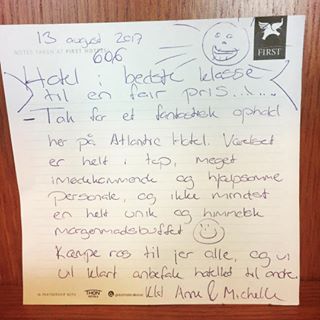 13 august 2017
NOTES TAKEN AT FIRST HOTELS
606
FIRST
Hotel i bedste klasse
til en fair pris......
- Tak for et fantastisk ophold
her på Atlantic Hotel. Værelset
er helt i top, meget
imødekommende og hjælpsomme
personale, og ikke mindst
en helt unik og himmelsk
morgenmadsbuffet
Kæmpe ros til jer alle, og vi
vil klart anbefale hotellet til andre.
IN PARTNERSHIP WITH THON HOTELS
Kh Anne & Michelle